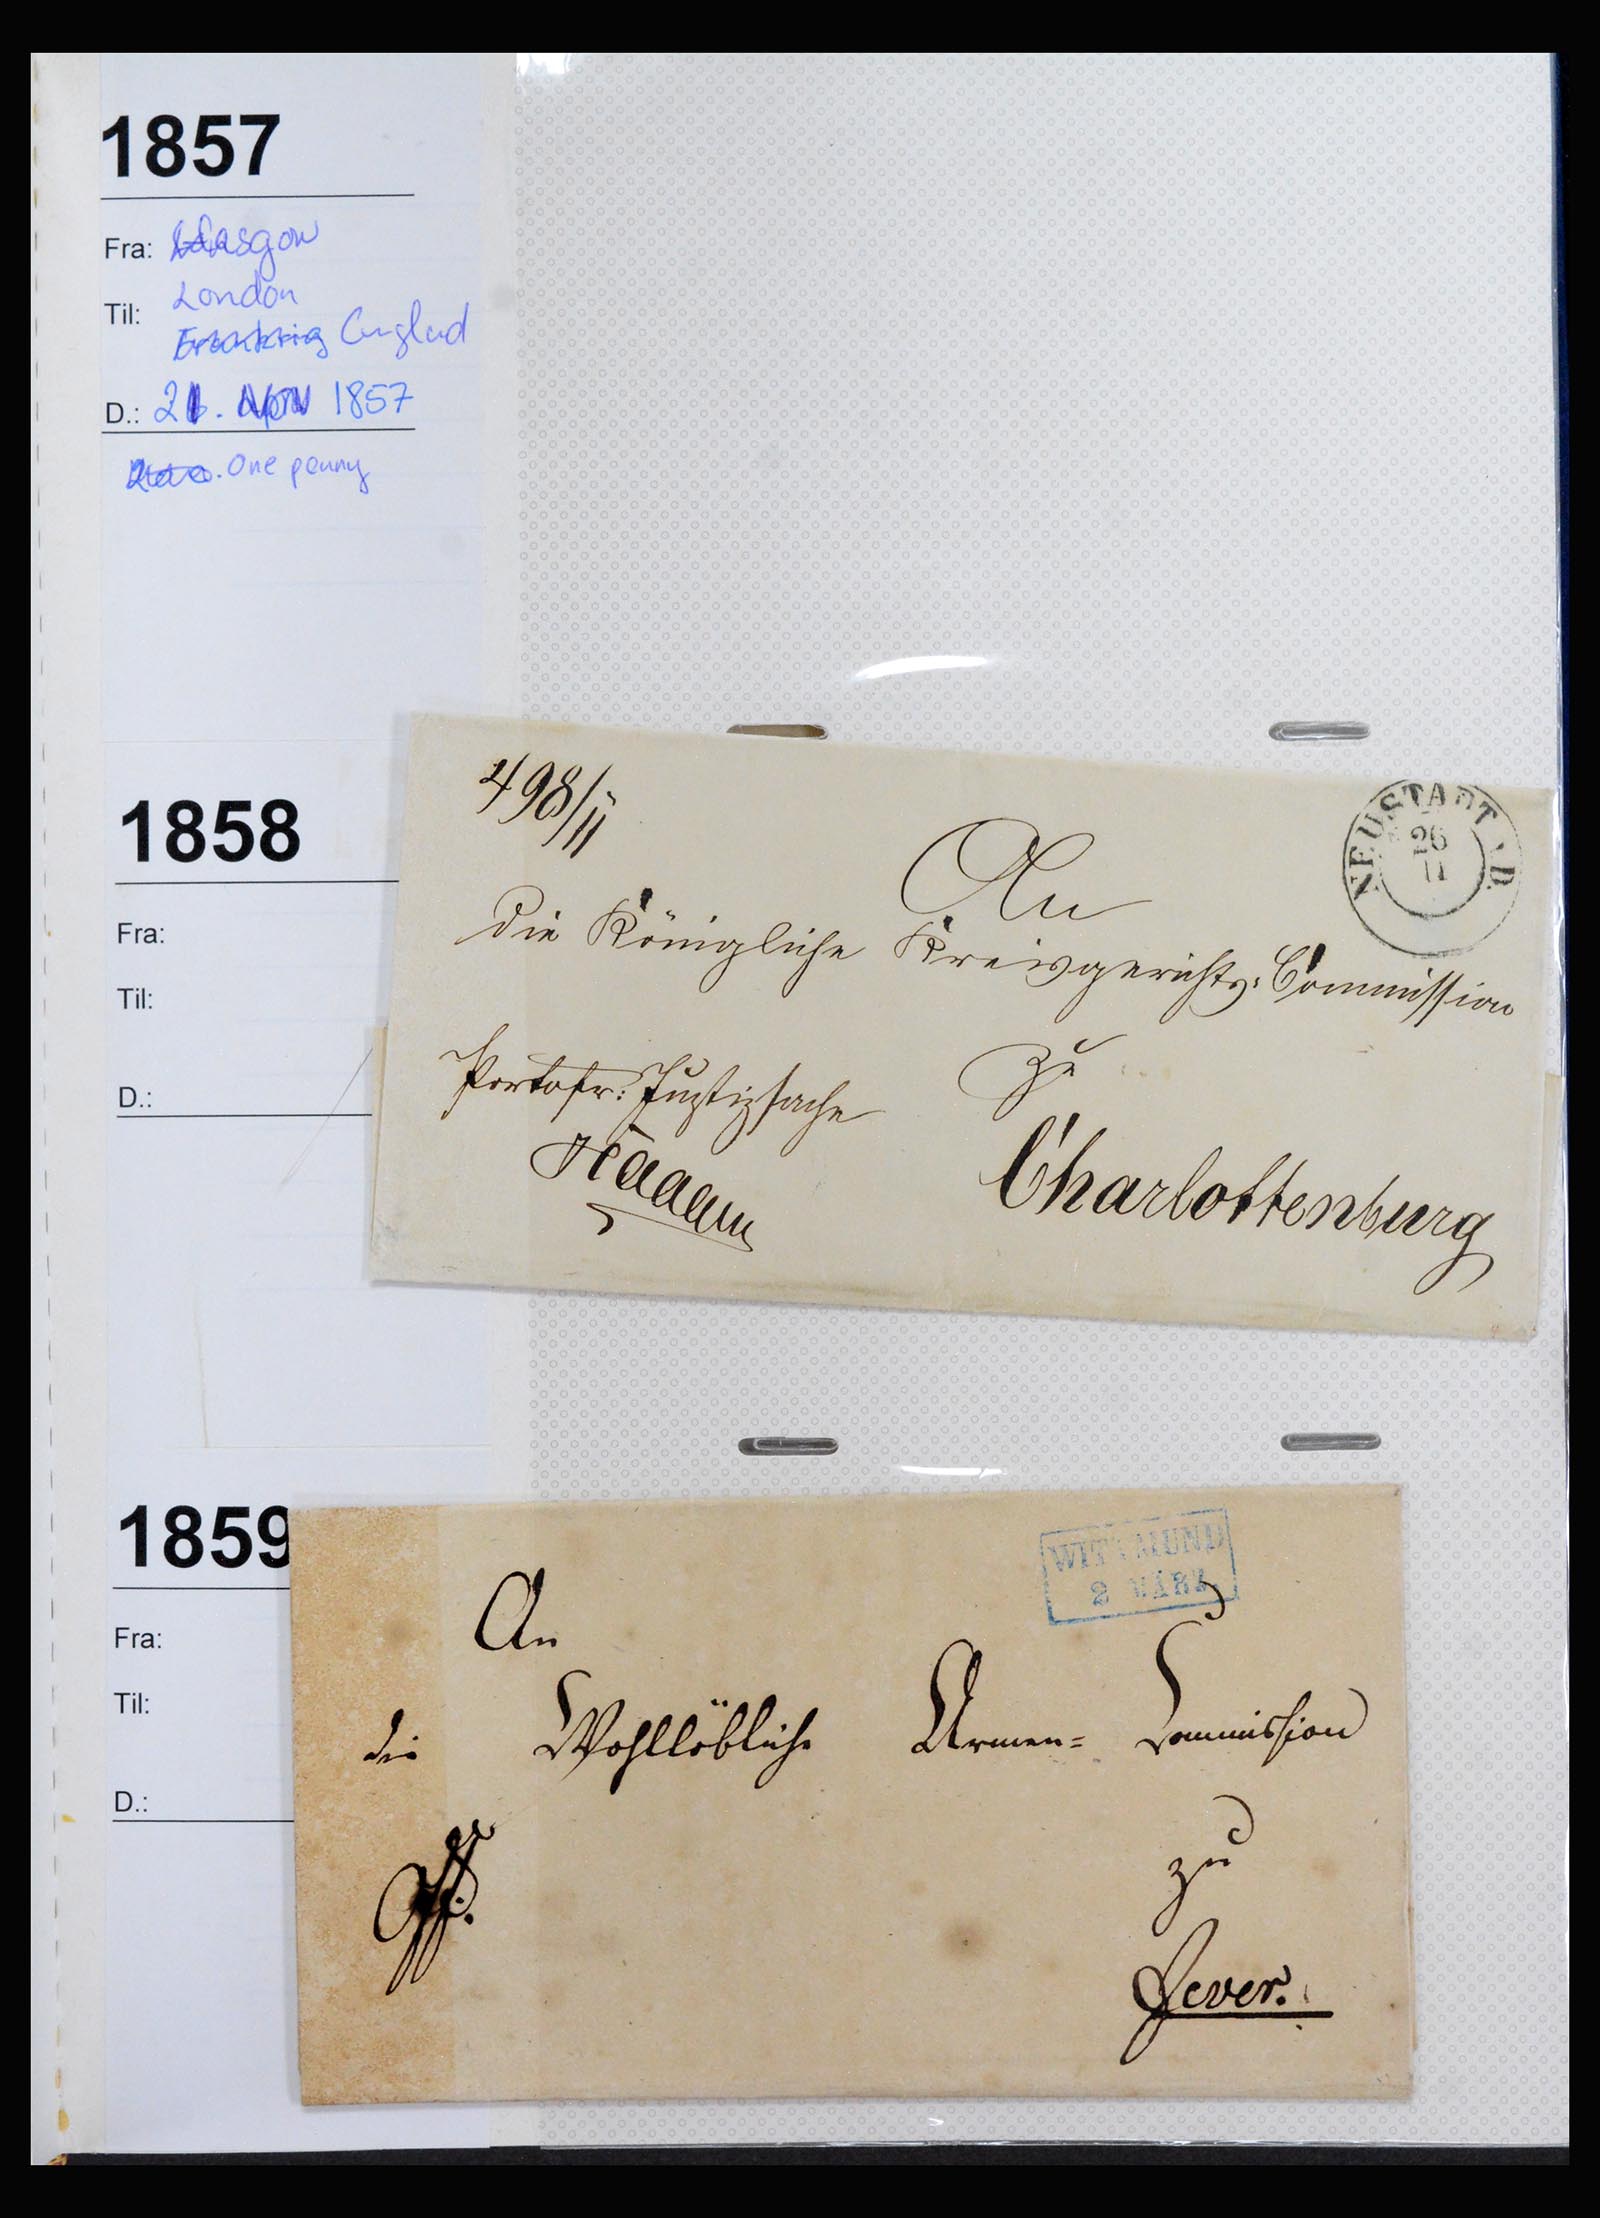 1857
Fra: Glasgow
Til: London
England
D.: 21. 1857
One penny
1858
Fra:
Til:
D.:
498/11
NEUSTADT
26
11
An
die Königliche Kreisgerichts-Commission
zu
Portofr: Justizsache
Charlottenburg
1859
Fra:
Til:
D.:
WITTMUND
2 MÄRZ
An
die Wohllöbliche Armen= Commission
zu
Jever.